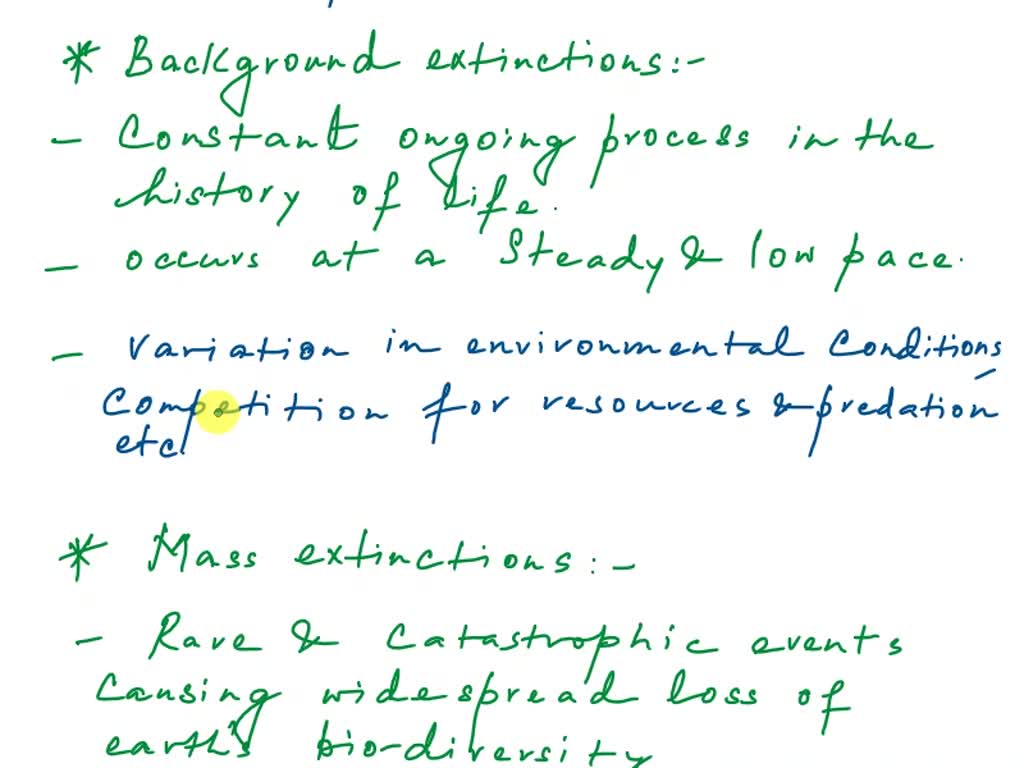 * Background extinctions:-
- Constant ongoing process in the
history of life.
- occurs at a steady & low pace.
- Variation in environmental Conditions
Competition for resources & predation
etc
* Mass extinctions:-
- Rare & Catastrophic events
Causing widespread loss of
earth's bio-diversity